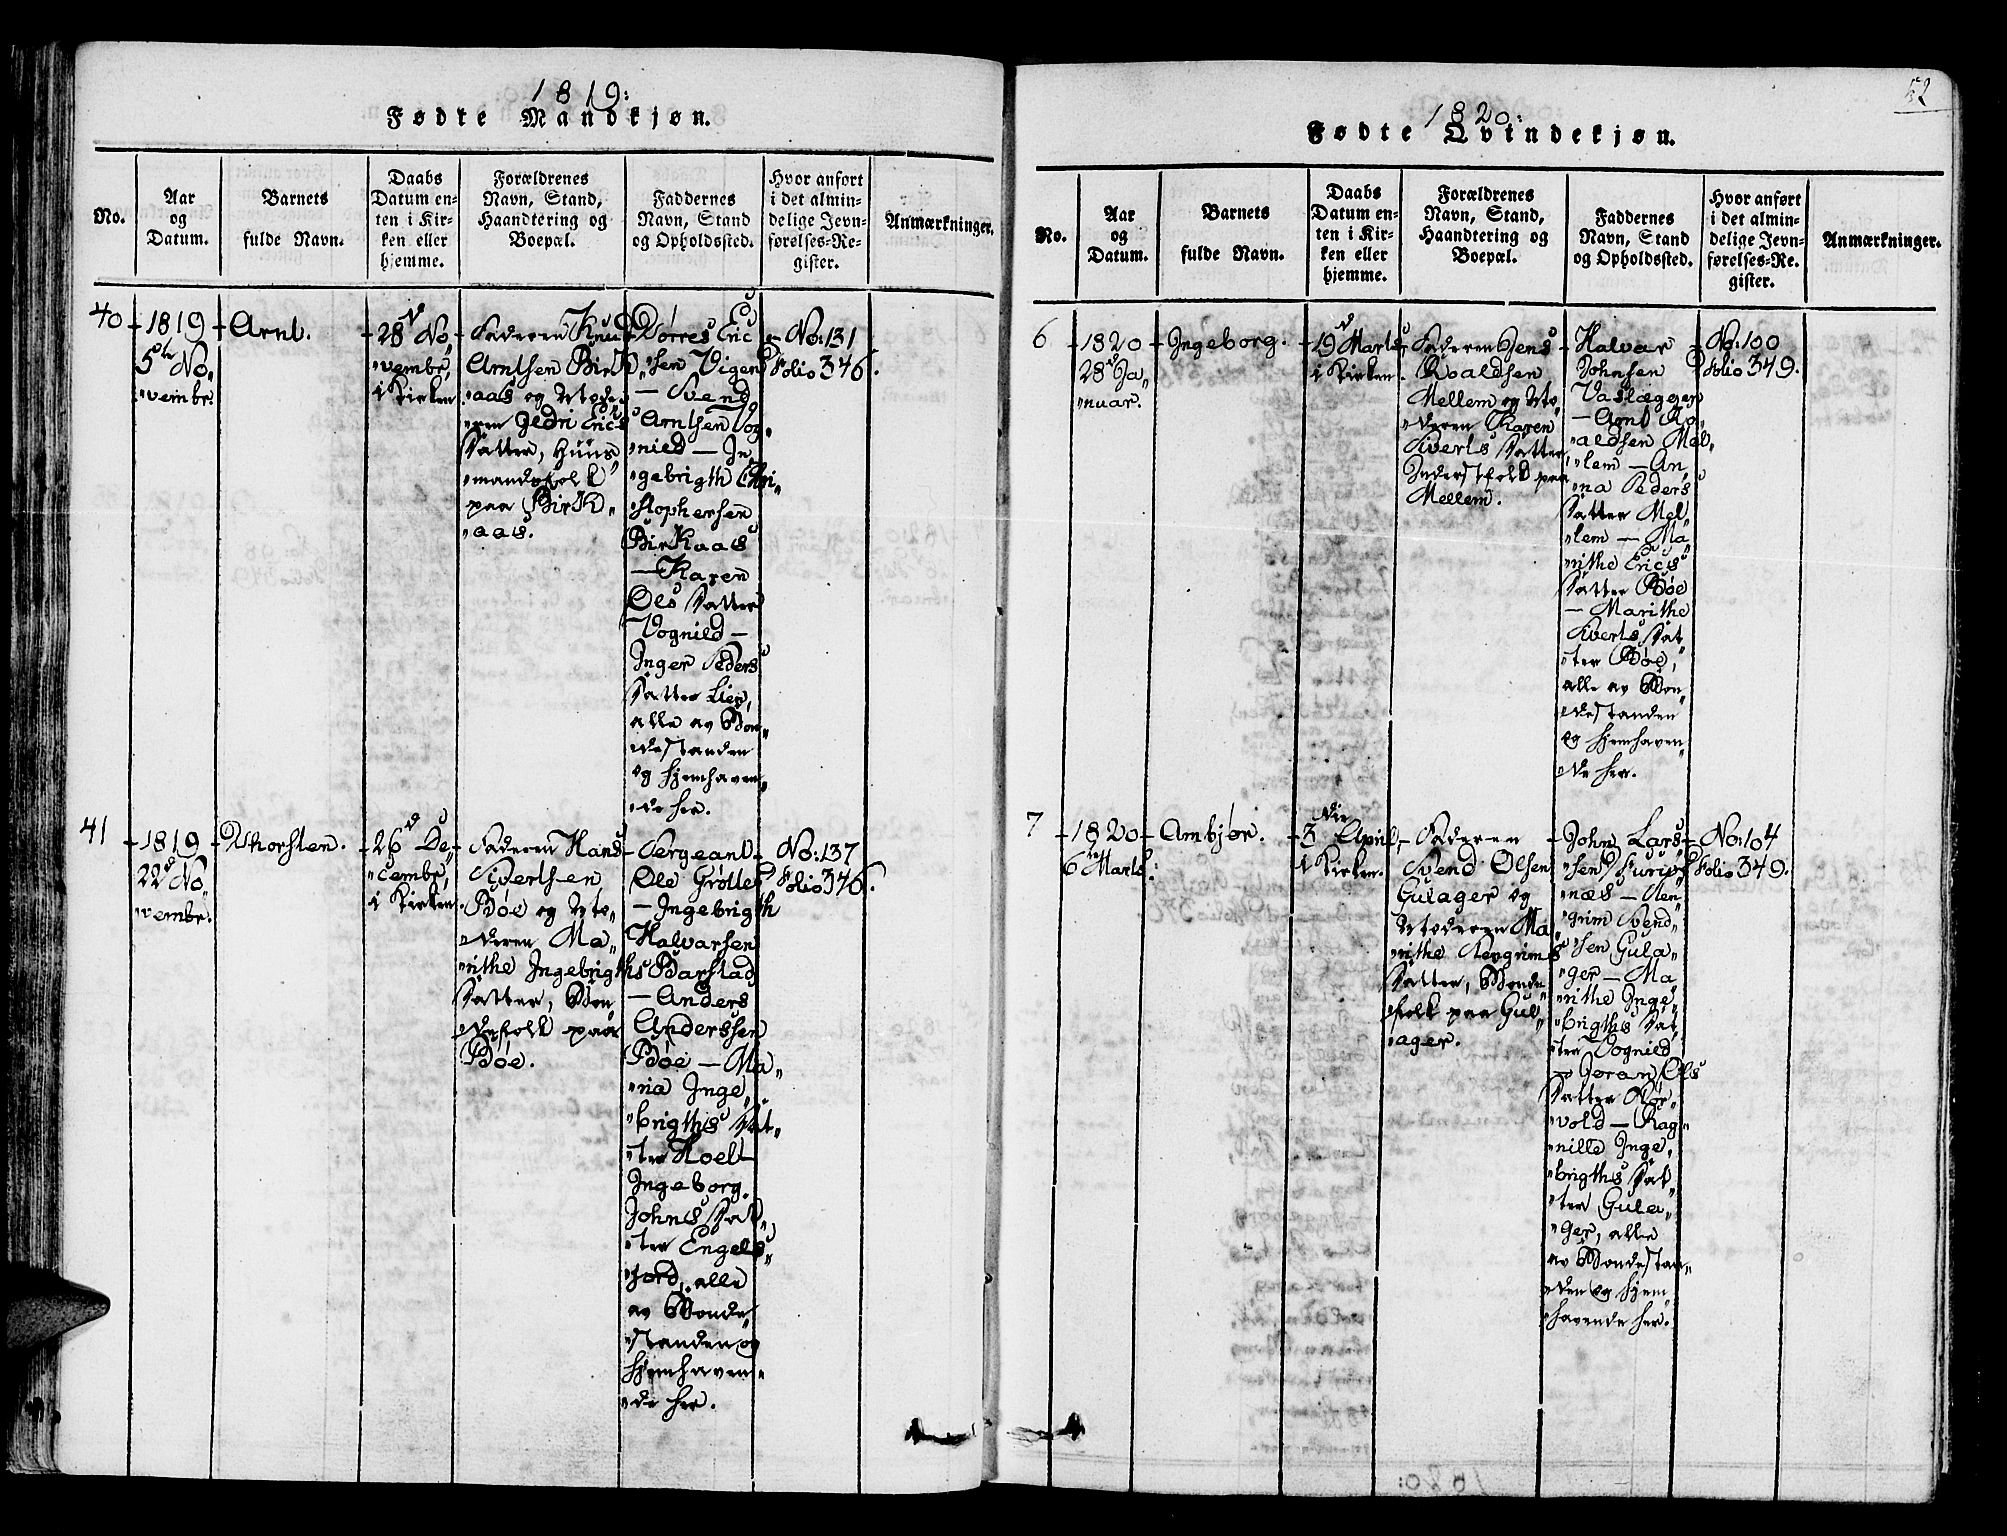 1819:
Fødte Mandkjøn.
No.
Aar
og
Datum.
Barnets
fulde Navn.
Daabs
Datum en-
ten i Kir-
ken eller
hjemme.
Forældrenes
Navn, Stand,
Haandtering og
Boepæl.
Faddernes
Navn, Stand
og Opholdssted.
Hvor anført
i det almin-
delige Jevn-
førelses-Re-
gister.
Anmærkninger.
40
1819
5te No„
„vembr.
Arnt.
28d No„
„vembr,
i Kirken
Faderen Knud
Arntsen Birk„
„aas og Mode„
„ren Jldri Erics
Datter, Huus„
„mandsfolk
paa Birk„
„aas.
Dorres Eric„
„sen Vigen
— Svend
Arntsen Vog„
„nild — In„
„gebrigth Chri„
„stophersen
Birkaas
— Karen
Ols Datter
Vognild —
Inger Peders
Datter Lien,
alle av Bon„
„destanden
og hjemhaven„
„de her.
No: 131
Folio 346.
41
1819
22d No„
„vembr.
Thorsten.
26d De„
„cembr,
i Kirken.
Faderen Hans
Sivertsen
Bøe og Mo„
„deren Ma„
„rithe Ingebrigths
Datter, Bon„
„defolk paa
Bøe.
Sergeant
Ole Grøtte
— Ingebrigth
Halvarsen
Barstad
— Anders
Anderssen
Bøe — Ma„
„ria Inge„
„brigths Dat„
„ter Hoel —
Ingeborg
Johns Dat„
„ter Engels„
„jord, alle
av Bonde„
„standen og
hjemhaven„
„de her.
No: 137
Folio 346.
52
1820:
Fødte Qvindekjøn.
No.
Aar
og
Datum.
Barnets
fulde Navn.
Daabs
Datum en-
ten i Kir-
ken eller
hjemme.
Forældrenes
Navn, Stand,
Haandtering og
Boepæl.
Faddernes
Navn, Stand
og Opholdssted.
Hvor anført
i det almin-
delige Jevn-
førelses-Re-
gister.
Anmærkninger.
6
1820
28d Ja„
„nuar.
Ingeborg.
19d Marts,
i Kirken.
Faderen Jens
Roaldsen
Mellem og Mo„
„deren Karen
Siverts Datter,
Inderstfolk paa
Mellem.
Halvar
Johnsen
Vaslægger
— Arnt Ro„
„aldsen Mel„
„lem — An„
„na Peders
Datter Mel„
„lem — Ma„
„rithe Erics
Datter Bøe
— Marithe
Siverts Dat„
„ter Bøe,
alle av Bon„
„destanden
og hjemhaven„
„de her.
No: 100
Folio 349.
7
1820
6te Marts.
Arnbjør.
3die April,
i Kirken.
Faderen
Svend Olsen
Gulager og
Moderen Ma„
„rithe Stengrims
Datter, Bonde„
„folk paa Gul„
„ager.
John Lars„
„sen Furu„
„næs — Sten„
„grim Svend„
„sen Gula„
„ger — Ma„
„rithe Inge„
„brigths Dat„
„ter Vognild
— Joran Ols
Datter Rør„
„vold — Rag„
„nille Inge„
„brigths Dat„
„ter Gula„
„ger, alle
av Bondestan„
„den og hjem„
„havende her.
No: 104
Folio 349.